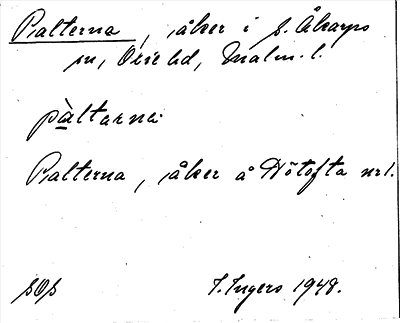 Palterna, åker i S. Åkarps
sn, Oxie hd, Malm. l.
pàltarna.
Palterna, åker å Hötofta nr 1.
SOS I. Ingers 1948.